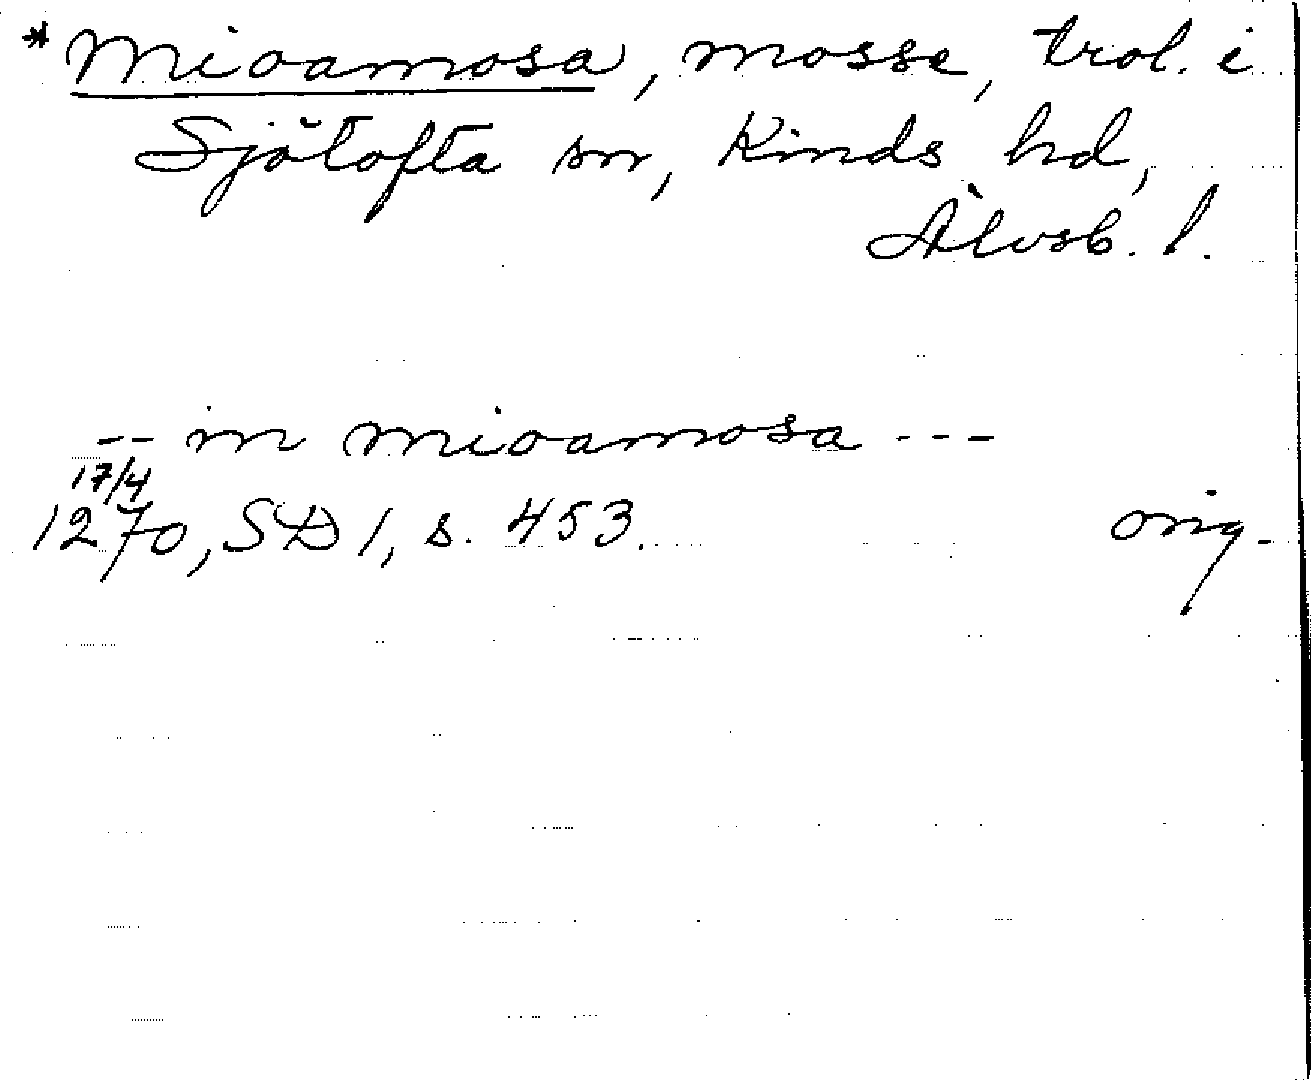 *Mioamosa, mosse, trol. i
Sjötofta sn, Kinds hd,
Älvsb. l.
-- in mioamosa ---
17/4
1270, SD 1, s. 453. orig.